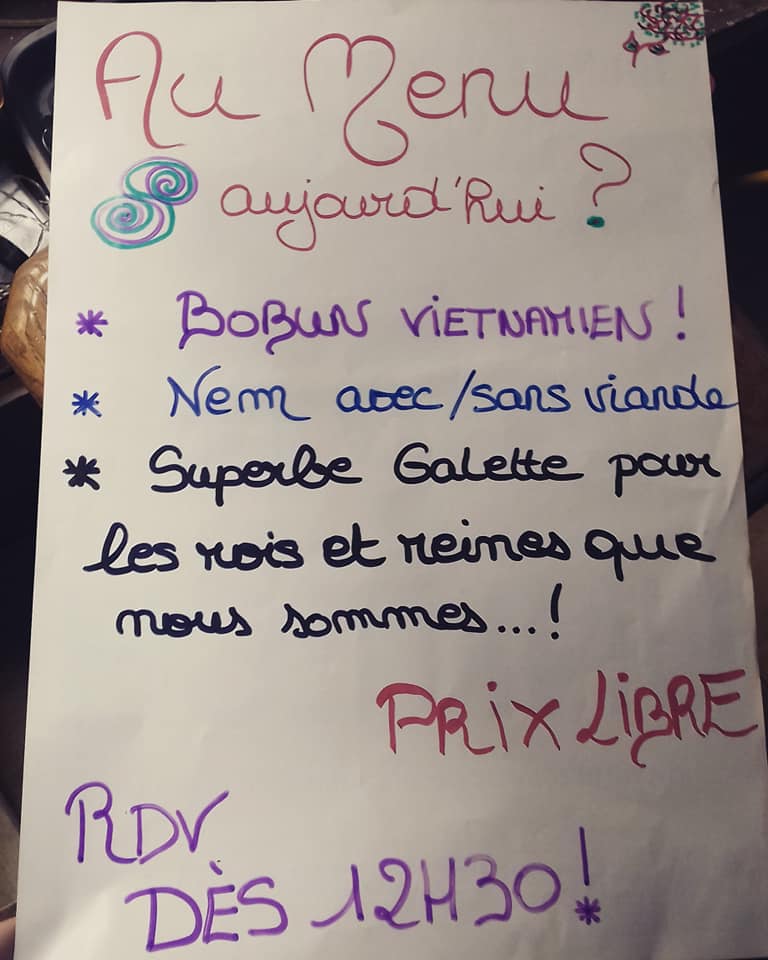 Au Menu
aujourd'hui ?
* BOBUN VIETNAMIEN !
* Nem avec/sans viande
* Superbe Galette pour
les rois et reines que
nous sommes...!
PRIX LIBRE
RDV
DÈS 12H30 !